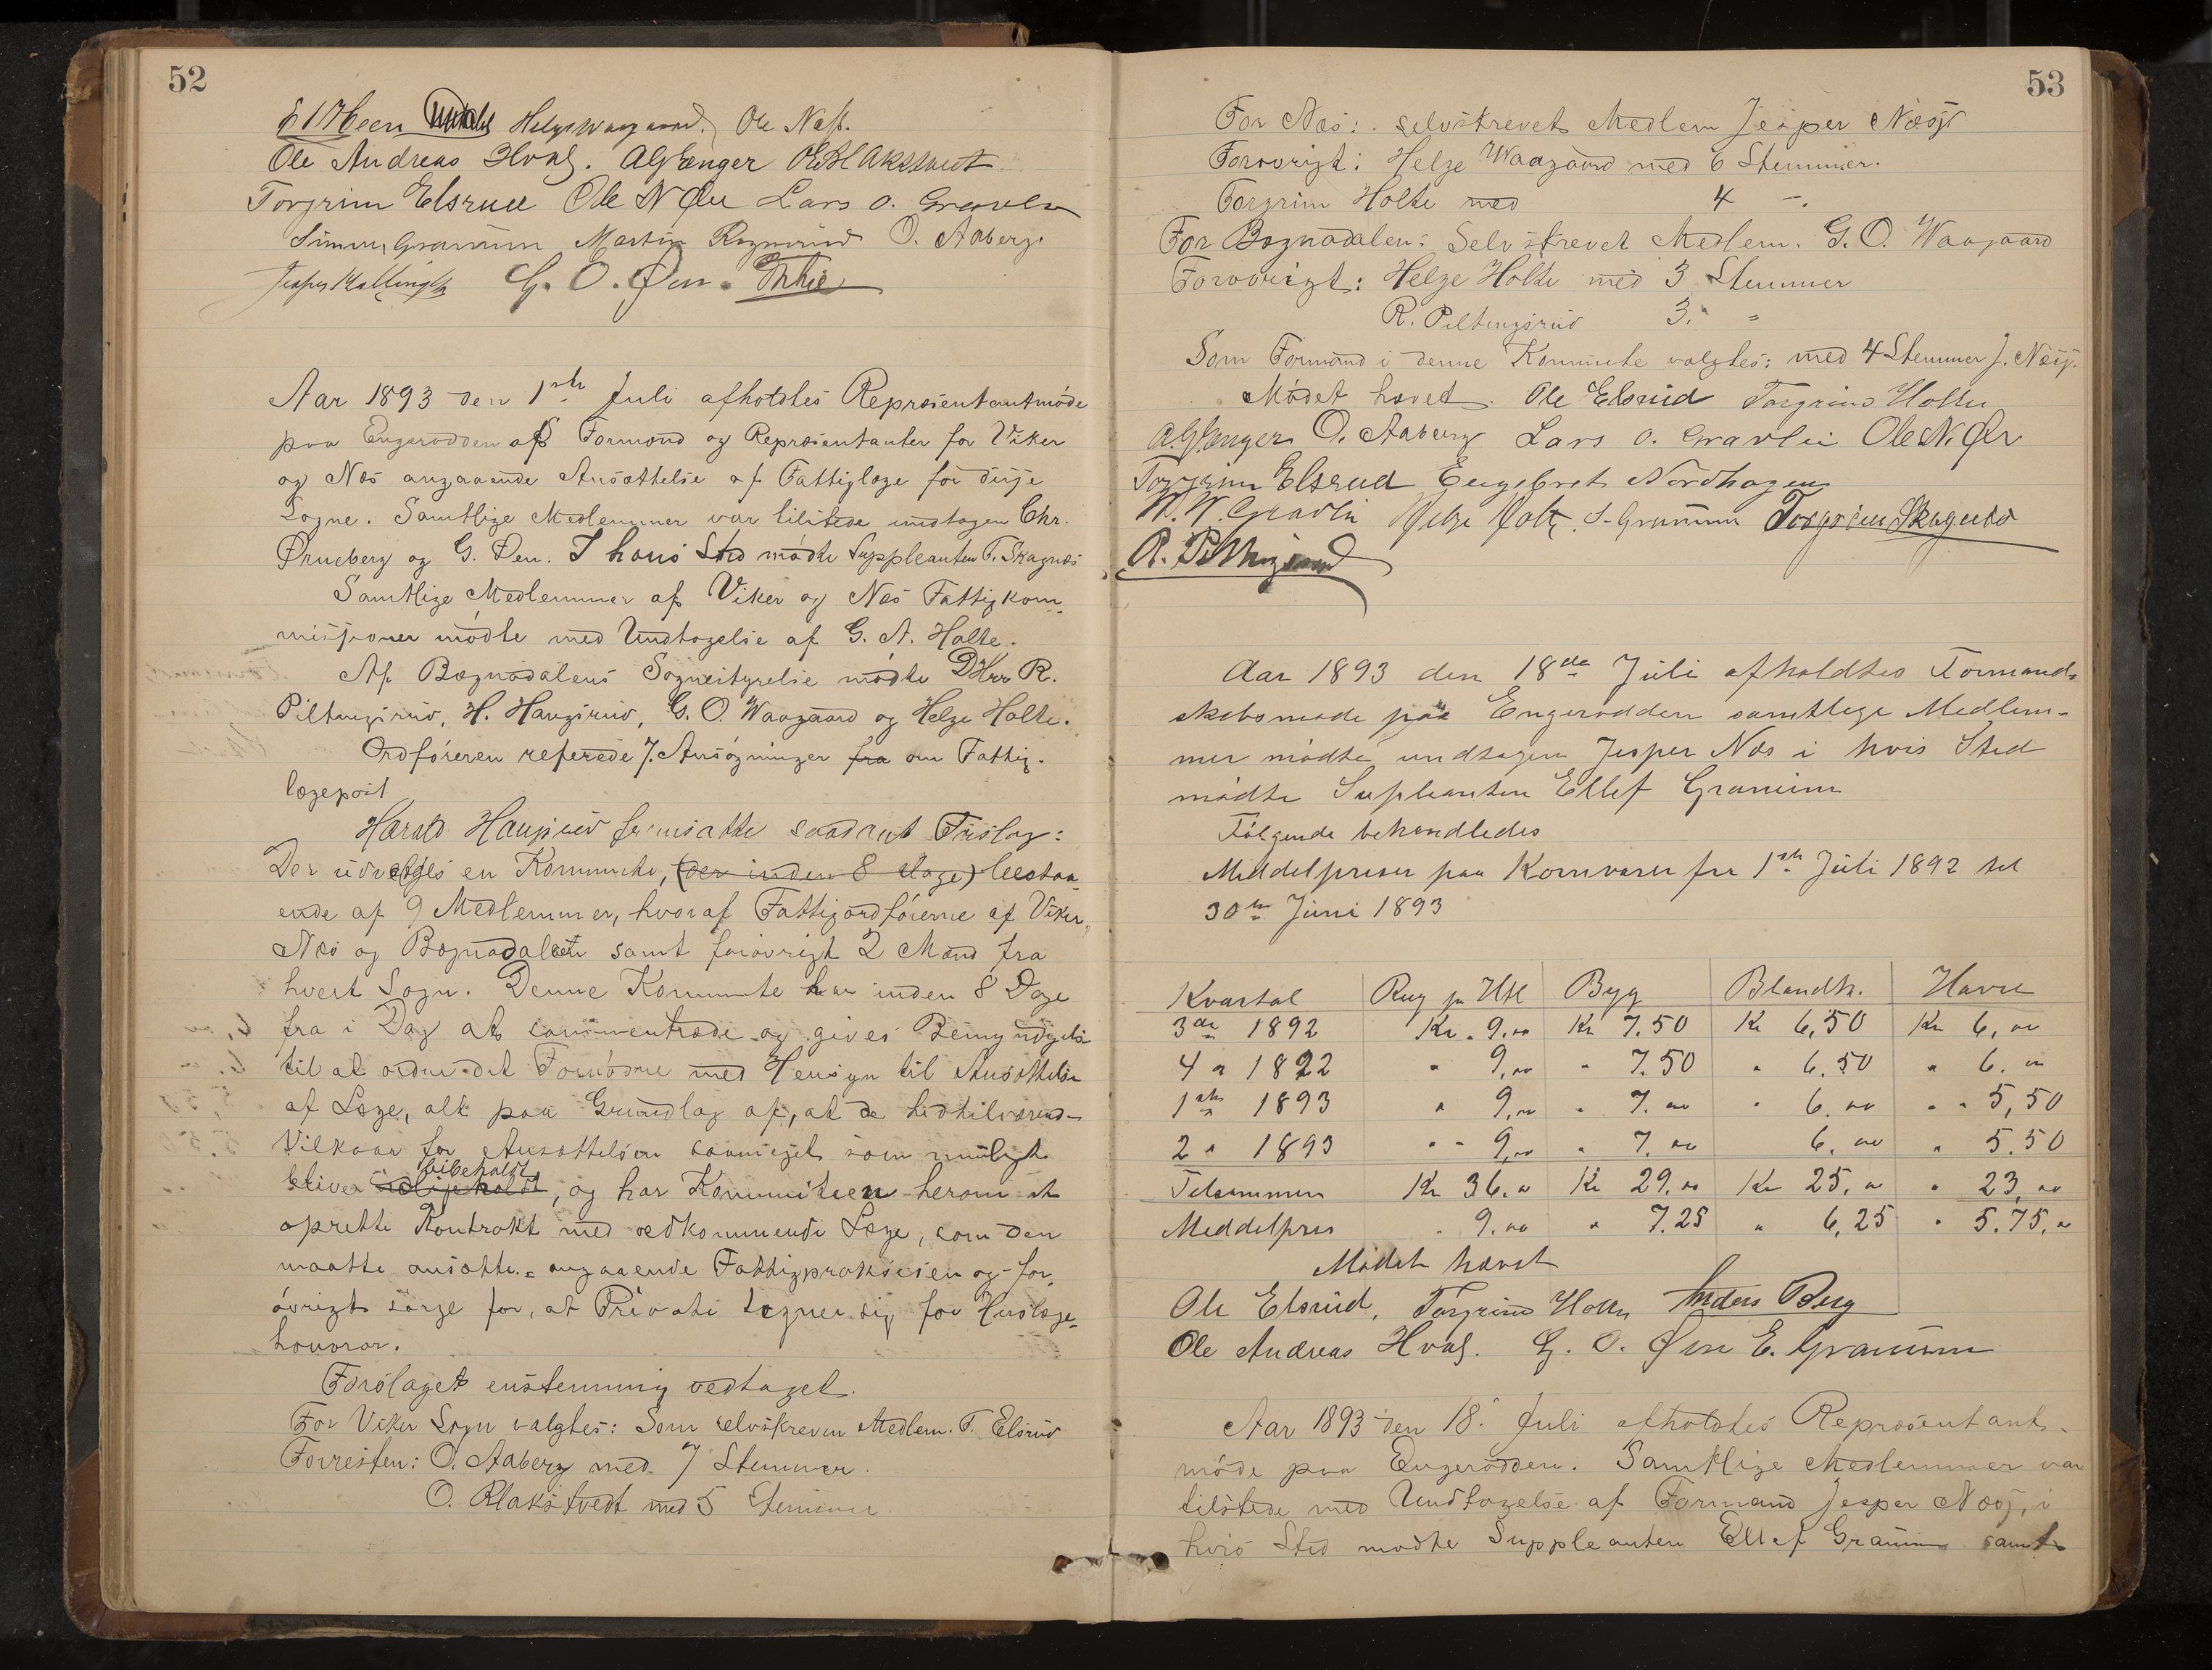 52
Helge Waagaard. Ole Næss.
Ole Andreas Hval. AGænger
Torgrim Elsrud Ole N Øen Lars O. Gravlie
Simen Granum Martin O. Aaberg
G. O. Øen.
Aar 1893 den 1ste Juli afholdtes Repræsentantmöde
paa Engerodden af Formænd og Repræsentanter for Viker
og Næs angaaende Ansættelse af Fattiglæge for disse
Sogne. Samtlige Medlemmer var tilstede undtagen Chr.
Ørneberg og G. Øen. I hans Sted mödte Suppleanten T. Skagnæs
Samtlige Medlemmer af Viker og Næs Fattigkom-
missjoner mödte med Undtagelse af G. A. Holte.
Af Bægnadalens Sognestyrelse mödte DHrr R.
Piltingsrud, H. Haugsrud, G. O. Waagaard og Helge Holte.
Ordföreren referede 7. Ansögninger fra om Fattig-
lægepost
Harald Haugsrud fremsatte saadant Forslag:
Der udvælges en Kommite, (der inden 8 Dage) bestaa-
ende af 9 Medlemmer, hvoraf Fattigordförerne af Viker,
Næs og Bægnadalen samt forövrigt 2 Mænd fra
hvert Sogn. Denne Kommite har inden 8 Dage
fra i Dag at sammentræde og gives Bemyndigelse
til at ordne det Fornödne med Hensyn til Ansættelse
af Læge, alt paa Grundlag af, at de hidtilværende
Vilkaar for Ansættelsen saavidt som muligt
bibeholdt
bliver, og har Kommiteen herom at
oprette Kontrakt med vedkommende Læge, som den
maatte ansætte - angaaende Fattigpraksisen og for-
övrigt sörge for, at Private tegner sig for Huslæge-
honorar.
Forslaget enstemmig vedtaget.
For Viker Sogn valgtes: Som selvskreven Medlem. T. Elsrud
Forresten: O. Aaberg med 7 Stemmer.
O. Blakstvedt med 5 Stemmer
53
For Næs: selvskrevet Medlem Jesper Næsj
Forövrigt: Helge Waagaard med 6 Stemmer.
Torgrim Holte med 4 -.
For Bægnadalen: Selvskrevet Medlem. G. O. Waagaard
Forövrigt: Helge Holte med 3 Stemmer
R. Piltingsrud 3. =
Som Formand i denne Kommite valgtes: med 4 Stemmer J. Næsj.
Mödet hævet. Ole Elsrud Torgrim Holte
AGænger O. Aaberg Lars O. Gravlie Ole N. Øen
Torgrim Elsrud Engebret Nordhagen
Gravli Helge Holte S. Granum Torgrim Skagnæs
R. Piltingsrud
Aar 1893 den 18de Juli afholdtes Formand-
skabsmøde paa Engerodden samtlege Medlem-
mer mödte undtagen Jesper Næs i hvis Sted
mödte Supleanten Ellef Granum
Følgende behandledes
Middelpriser paa Kornvarer fra 1ste Juli 1892 til
30te Juni 1893
Kvartal Rug pr Htl Byg Blandk. Havre
3de 1892 Kr. 9.00 Kr 7.50 Kr 6,50 Kr 6,00
4 " 1892 " 9,00 " 7.50 " 6.50 " 6.00
1ste 1893 " 9,00 " 7.00 " 6.00 " " 5,50
2 " 1893 " " 9,00 " 7.00 6.00 " 5.50
Tilsammen Kr 36.00 Kr 29.00 Kr 25,00 " 23,00
Meddelpris " 9.00 " 7.25 " 6,25 " 5.75,"
Mödet hævet
Ole Elsrud, Torgrim Holte Anders Berg
Ole Andreas Hval. G. O. Øen E. Granum
Aar 1893 den 18. Juli afholdtes Repræsentant-
möde paa Engerodden. Samtlige Medlemmer var
tilstede med Undtagelse af Formand Jesper Næsj, i
hvis Sted mødte Suppleanten Ellef Granum samt